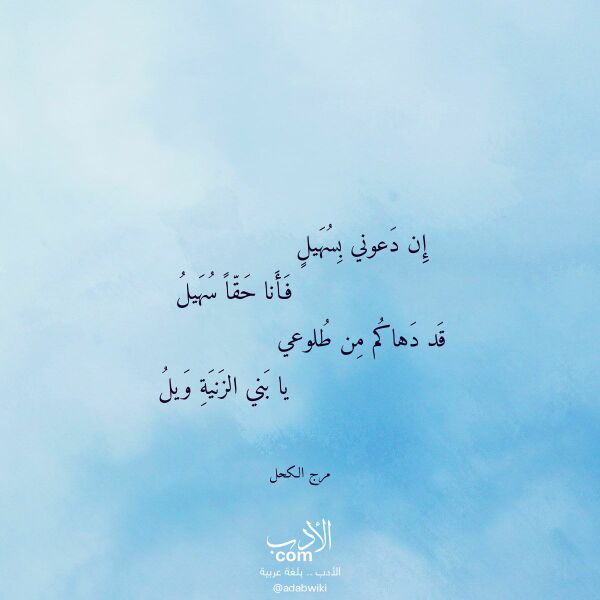 إِن دَعوني بِسُهَيلٍ
فَأَنا حَقّاً سُهَيلُ
قَد دَهاكُم مِن طُلوعي
يا بَني الزَنيَةِ وَيلُ
مرج الكحل
الأدب
com
الأدب .. بلغة عربية
@adabwiki